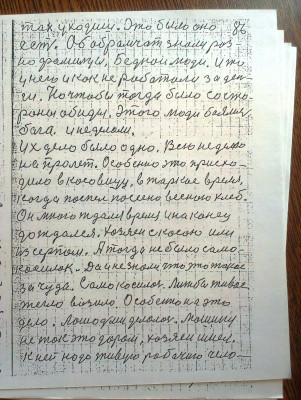 так уходили. Это было оно 86
лет. Об обрянчат знали роз
но драмишул. Бедной люди. И что
у него и как не работали за ден
ги. Но чтобы тогда было со сто
роны обиды. Этого люди боялис
бога. и неделом.
Их дело было одно. Всю неделю
на пролет. Особенно это приско
дило в косовицу, в жаркое время,
когда поспел посеено весною хлеб.
Он много ждал время и наконец
дождался. Хозяен с косою или
из серпом. А тогда не было само
косилок. Да и не знали что это такое
за чуда. Само косилов. живае
тегло возило Особенно на это
дело. Лошадми делалос. Машину
не так это дорого, хозяен имеет.
К ней надо живую рабочию чело